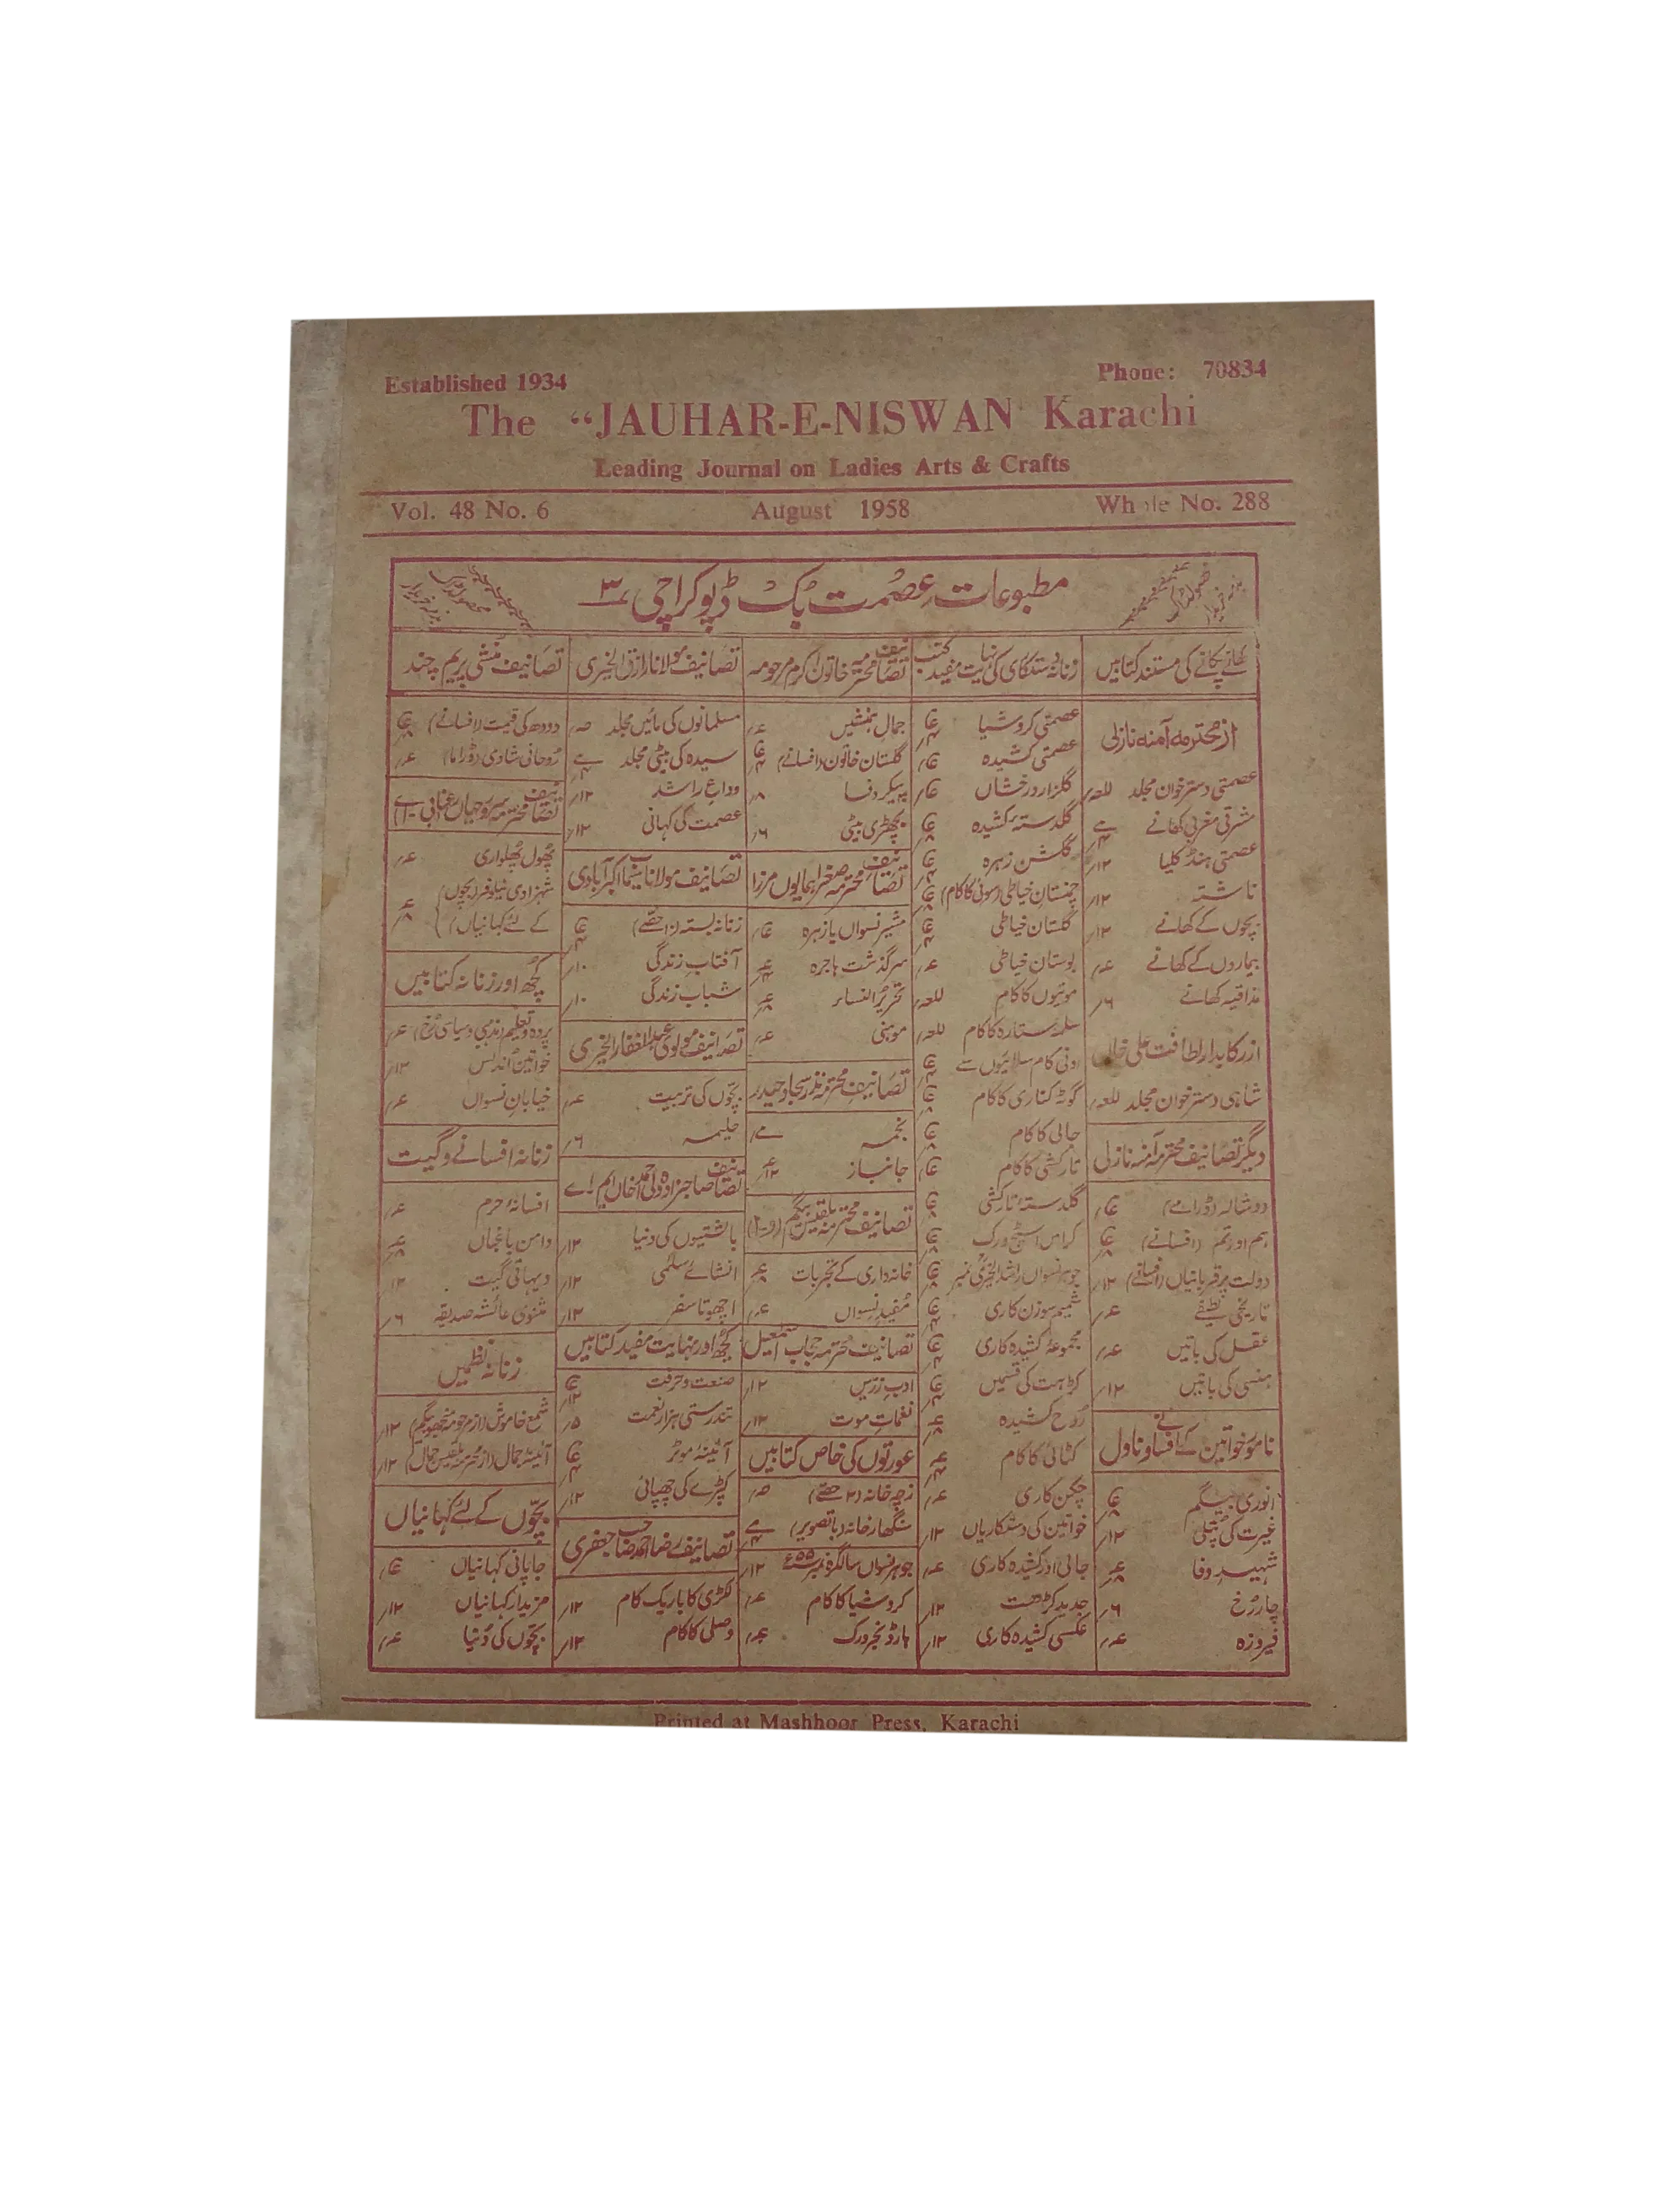 Established 1934
Phone: 70834
The “JAUHAR-E-NISWAN Karachi
Leading Journal on Ladies Arts & Crafts
Vol. 48 No. 6
August 1958
Whole No. 288
مطبوعات عصمت بک ڈپو کراچی ۳
کھانے پکانے کی مستند کتابیں
از محترمہ آمنہ نازلی
عصمتی دسترخوان مجلد للعہ
مشرقی مغربی کھانے
عصمتی ہنڈ کلیا ۱۲؍
ناشتہ ۱۲؍
بچوں کے کھانے ۱۲؍
بیماروں کے کھانے عہ؍
مذاقیہ کھانے ۶؍
از رکابدار لطافت علی خاں
شاہی دسترخوان مجلد للعہ؍
دیگر تصانیف محترمہ آمنہ نازلی
دوشالہ (ڈرامے)
ہم اور تم (افسانے)
دولت پر قربانیاں (افسانے) ۱۲؍
تاریخی لطیفے عہ؍
عقل کی باتیں عہ؍
ہنسی کی باتیں ۱۲؍
نامور خواتین کے افسانے و ناول
انوری بیگم
غیرت کی پتلی ۱۲؍
شہید وفا
چار رخ ۶؍
فیروزہ عہ؍
زنانہ دستکاری کی نہایت مفید کتب
عصمتی کروشیا
عصمتی کشیدہ
گلزار درخشاں
گلدستہ کشیدہ
گلشن زہرہ
چمنستان خیاطی (سوئی کا کام)
گلستان خیاطی
بوستان خیاطی عہ؍
موتیوں کا کام للعہ؍
سلمہ ستارہ کا کام للعہ؍
اونی کام سلائیوں سے
گوٹہ کناری کا کام
جالی کا کام
تارکشی کا کام
گلدستہ تارکشی
کراس اسٹچ ورک
جوہر نسواں راشد الخیری نمبر
شمیم سوزن کاری
مجموعہ کشیدہ کاری
کڑہت کی قسمیں
روح کشیدہ
کٹائی کا کام
چکن کاری عہ؍
خواتین کی دستکاریاں ۱۲؍
جالی اور کشیدہ کاری عہ؍
جدید کڑھت ۱۲؍
عکسی کشیدہ کاری ۱۲؍
تصانیف محترمہ خاتون اکرم مرحومہ
جمال ہمنشیں عہ؍
گلستان خاتون (افسانے)
پیکر وفا ۸؍
بچھڑی بیٹی ۶؍
تصانیف محترمہ صغرا ہمایوں مرزا
مشیر نسواں یا زہرہ
سرگذشت ہاجرہ
تحریر النساء
موہنی عہ؍
تصانیف محترمہ نذر سجاد حیدر
نجمہ
جانباز
تصانیف محترمہ بلقیس بیگم
خانہ داری کے تجربات
مفید نسواں عہ؍
تصانیف محترمہ حجاب اسمٰعیل
ادب زریں ۱۲؍
نغمات موت ۱۲؍
عورتوں کی خاص کتابیں
زچہ خانہ (۲ حصے)
سنگھار خانہ (باتصویر)
جوہر نسواں سالگرہ نمبر ۵۵ء ۱۲؍
کروشیا کا کام عہ؍
ہارڈنجر ورک
تصانیف مولانا رازق الخیری
مسلمانوں کی مائیں مجلد
سیدہ کی بیٹی مجلد
وداع راشد ۱۲؍
عصمت کی کہانی ۱۲؍
تصانیف مولانا سیماب اکبرآبادی
زنانہ بستہ (۱۰ حصے)
آفتاب زندگی ۱۰؍
شباب زندگی ۱۰؍
تصانیف مولوی عبدالغفار الخیری
بچوں کی تربیت عہ؍
حلیمہ ۶؍
تصانیف صاحبزادہ ولی احمد خاں ایم اے
بالشتیوں کی دنیا ۱۲؍
انشائے سلمی ۱۲؍
اچھوتا سفر ۱۲؍
کچھ اور نہایت مفید کتابیں
صنعت و حرفت
تندرستی ہزار نعمت ۵؍
آئینہ موٹر
کپڑے کی چھپائی ۱۲؍
تصانیف رضا احمد صاحب جعفری
لکڑی کا باریک کام ۱۲؍
وصلی کا کام ۱۲؍
تصانیف منشی پریم چند
دودھ کی قیمت (افسانے)
روحانی شادی (ڈراما) عہ؍
پھول پھلواری عہ؍
شہزادی نیلوفر (بچوں
کے لئے کہانیاں)
کچھ اور زنانہ کتابیں
پردہ و تعلیم (مذہبی و سیاسی رخ) عہ؍
خواتین اندلس ۱۲؍
خیابان نسواں عہ؍
زنانہ افسانے و گیت
افسانہ حرم عہ؍
دامن باغباں
دیہاتی گیت ۱۲؍
مثنوی عائشہ صدیقہ ۶؍
زنانہ نظمیں
شمع خاموش ۱۲؍
آئینہ جمال (از محترمہ بلقیس جمال) ۱۲؍
بچوں کے لئے کہانیاں
جاپانی کہانیاں
مزیدار کہانیاں ۱۲؍
بچوں کی دنیا عہ؍
Printed at Mashhoor Press, Karachi